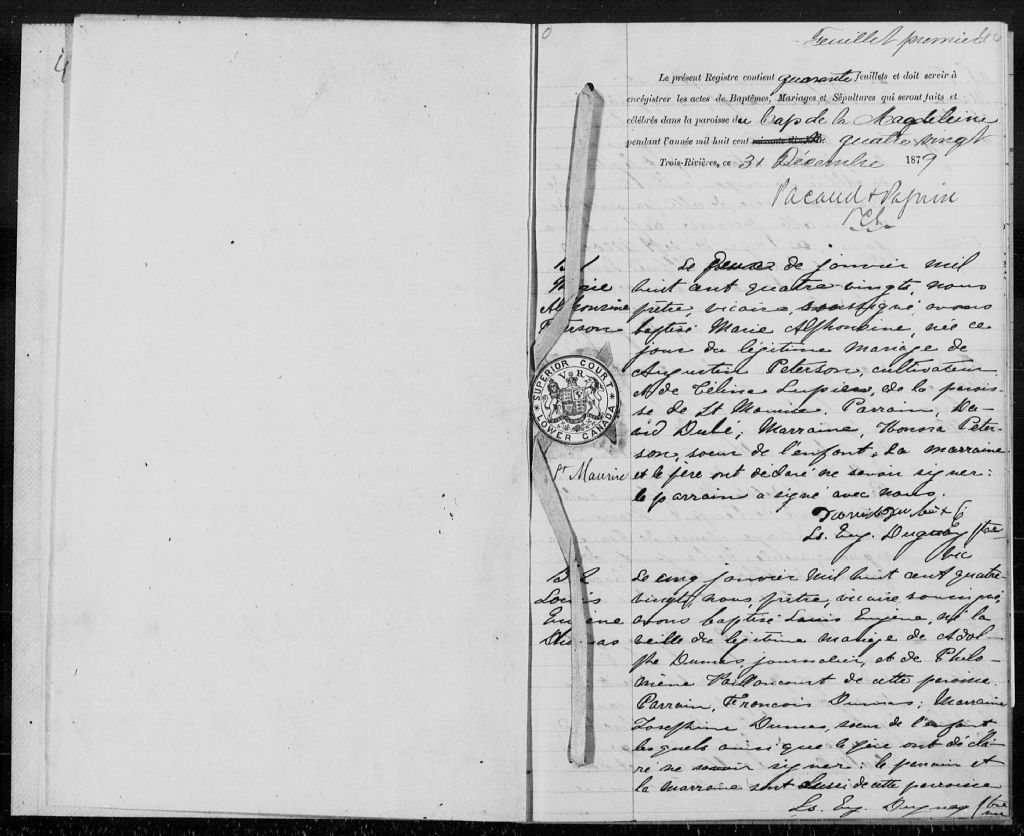 4
0
Feuillet premier
Le présent Registre contient quarante feuillets et doit servir à
enrégistrer les actes de Baptêmes, Mariages et Sépultures qui seront faits et
célébrés dans la paroisse du Cap de la Magdeleine
pendant l'année mil huit cent quatre vingt
Trois-Rivières, ce 31 Décembre 1879
Pacaud & Paquin
B 1
Marie
Alphonsine
Peterson
St Maurice
Le deux de janvier mil
huit cent quatre vingts, nous
prêtre, vicaire, soussigné, avons
baptisé Marie Alphonsine, née ce
jour du légitime mariage de
Augustin Peterson, cultivateur
et de Céline Lupien, de la parois-
se de St Maurice. Parrain, Da-
vid Dubé; Marraine, Honora Peter-
son, soeur de l'enfant. La marraine
et le père ont déclaré ne savoir signer:
le parrain a signé avec nous.
Ls. Eug. Duguay ptre
vic
SUPERIOR COURT
V R
LOWER CANADA
B 2
Louis
Eugène
Dumas
Le cinq janvier mil huit cent quatre
vingts, nous, prêtre, vicaire soussigné,
avons baptisé Louis Eugène, né la
veille du légitime mariage de Adol-
phe Dumas, journalier, et de Philo-
mène Vaillancourt de cette paroisse.
Parrain, Francois Dumas; Marraine
Josephine Dumas, soeur de l'enfant
lesquels ainsi que le père ont décla-
ré ne savoir signer: le parrain et
la marraine sont aussi de cette paroisse
Ls. Eug. Duguay ptre
vic